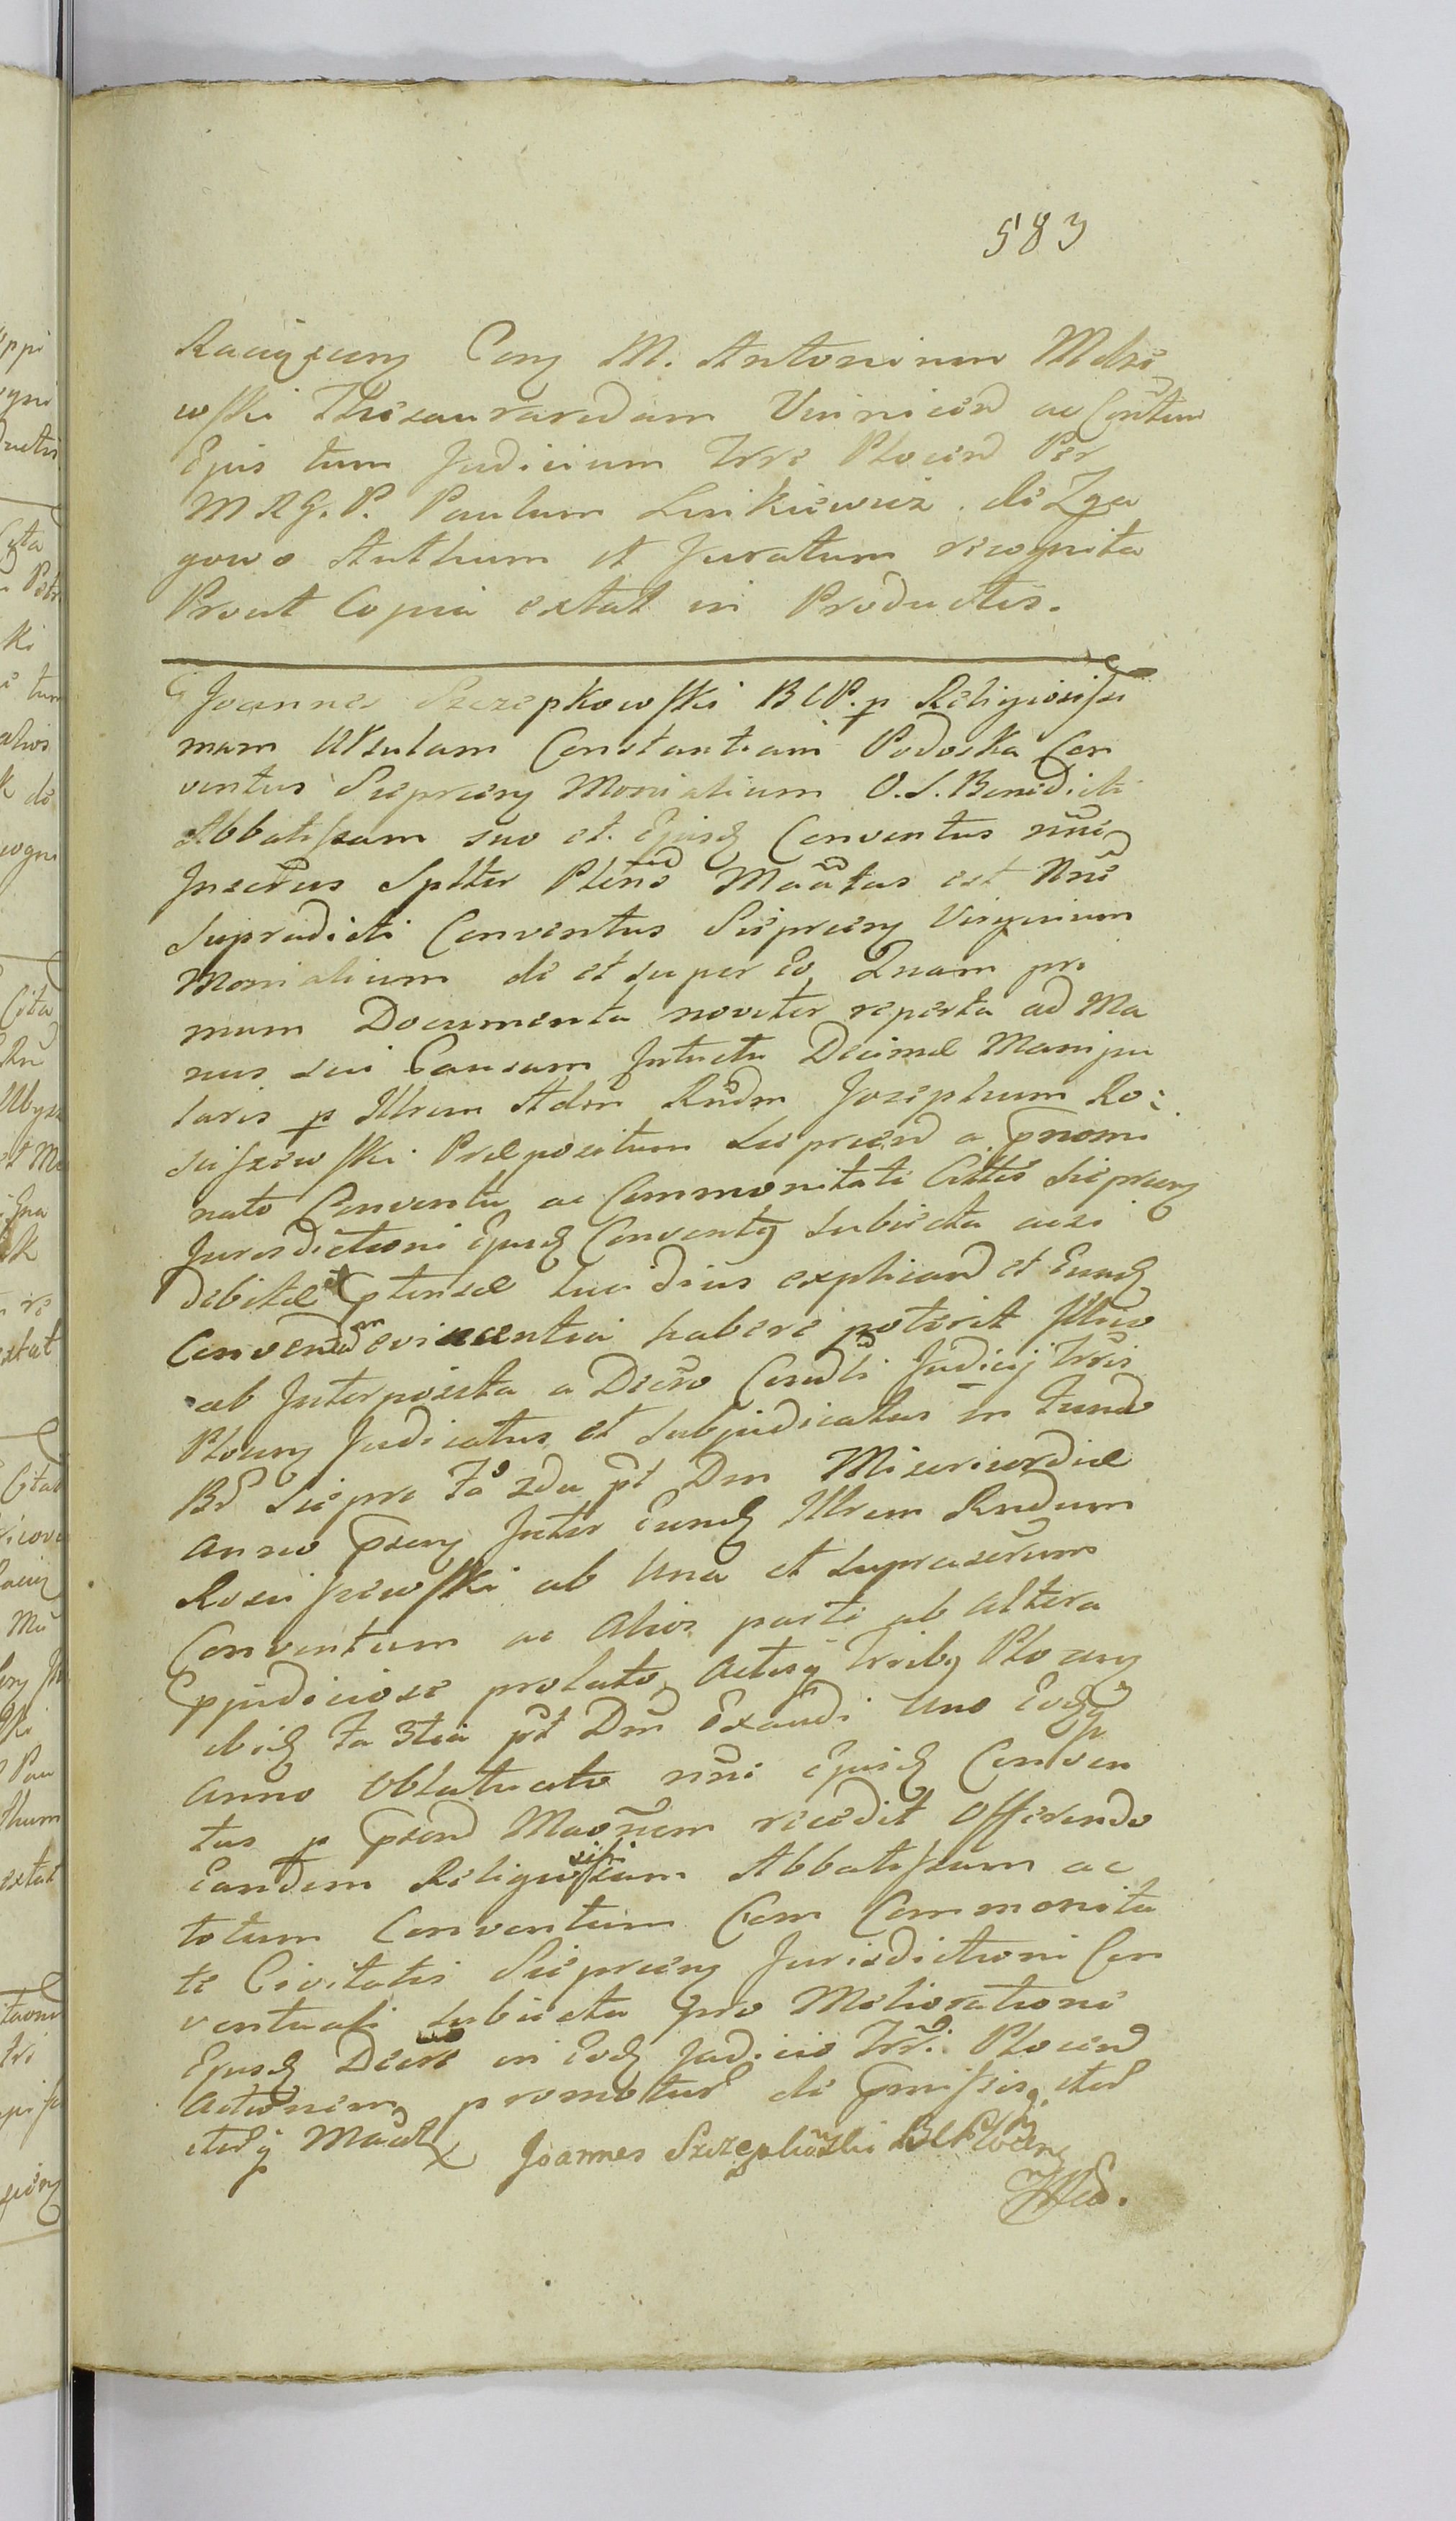 583
Raciązens Cons M. Antonium Mdze
wski Thesauraridam Vinnicen ac Contum
Ejus tum Judicium Trre Plocen Per
M R G. P. Paulum Linkiewicz de Zga
gowo Authum et Juratum recognita
Prout Copia extat in Productis.
Joannes Szczepkowski B C P. p Religiosissi
mam Ursulam Constantiam Podoska Con
ventus Sieprcens Monialium O. S. Benedicti
Abbatissam suo et Ejusd Conventus nni
Insertus Splter Pleno Maatus est Nne
Supradicti Conventus Sieprcens Virginum
Monialium de et super eo Quam pri
mum Documenta noviter reperta ad Ma
nus sui Causam Intuitu Decimæ Manipu
laris p Illrem Adm Rndm Josephum Ro:
sciszewski Præpositum Sieprcen a pnomi
nato Conventu ac Communitati Cittis Sieprcens
Jurisdictioni Ejusd Conventus Subiecta acsi
debitæ et ptensæ lucidius explicand et Eund
Convend evincentia habere poterit Illico
ab Interposita a Decro Condli Judicij Trris
Plocens Judicatus et Subjudicatus in Fundo
Bd Sieprc Fa 2da pt Dm Misericordiæ
Anno psens Inter Eund Illrem Rndum
Rosciszewski ab Una et Suprasetum
Conventum ac Alios parte ab altera
Epjudiciose prolato, Actisq Trribq Plocens
ibid Fa 3tia pt Dm Exaudi Uno Eodq
Anno Oblatuato nni Ejusd Conven
tus p psend Maonem recedit Offerendo
Eandem Religiosissimam Abbatissam ac
totum Conventum Cum Communita
te Civitatis Sieprcens Jurisdictioni Con
ventuali Subiecta pro Melioratione
Ejusd Decre in Eod Judicio Trri Plocen
Actionem promoturd de pmissis, itd
itdq Maat Joannes Szczepkowski BCPlocens